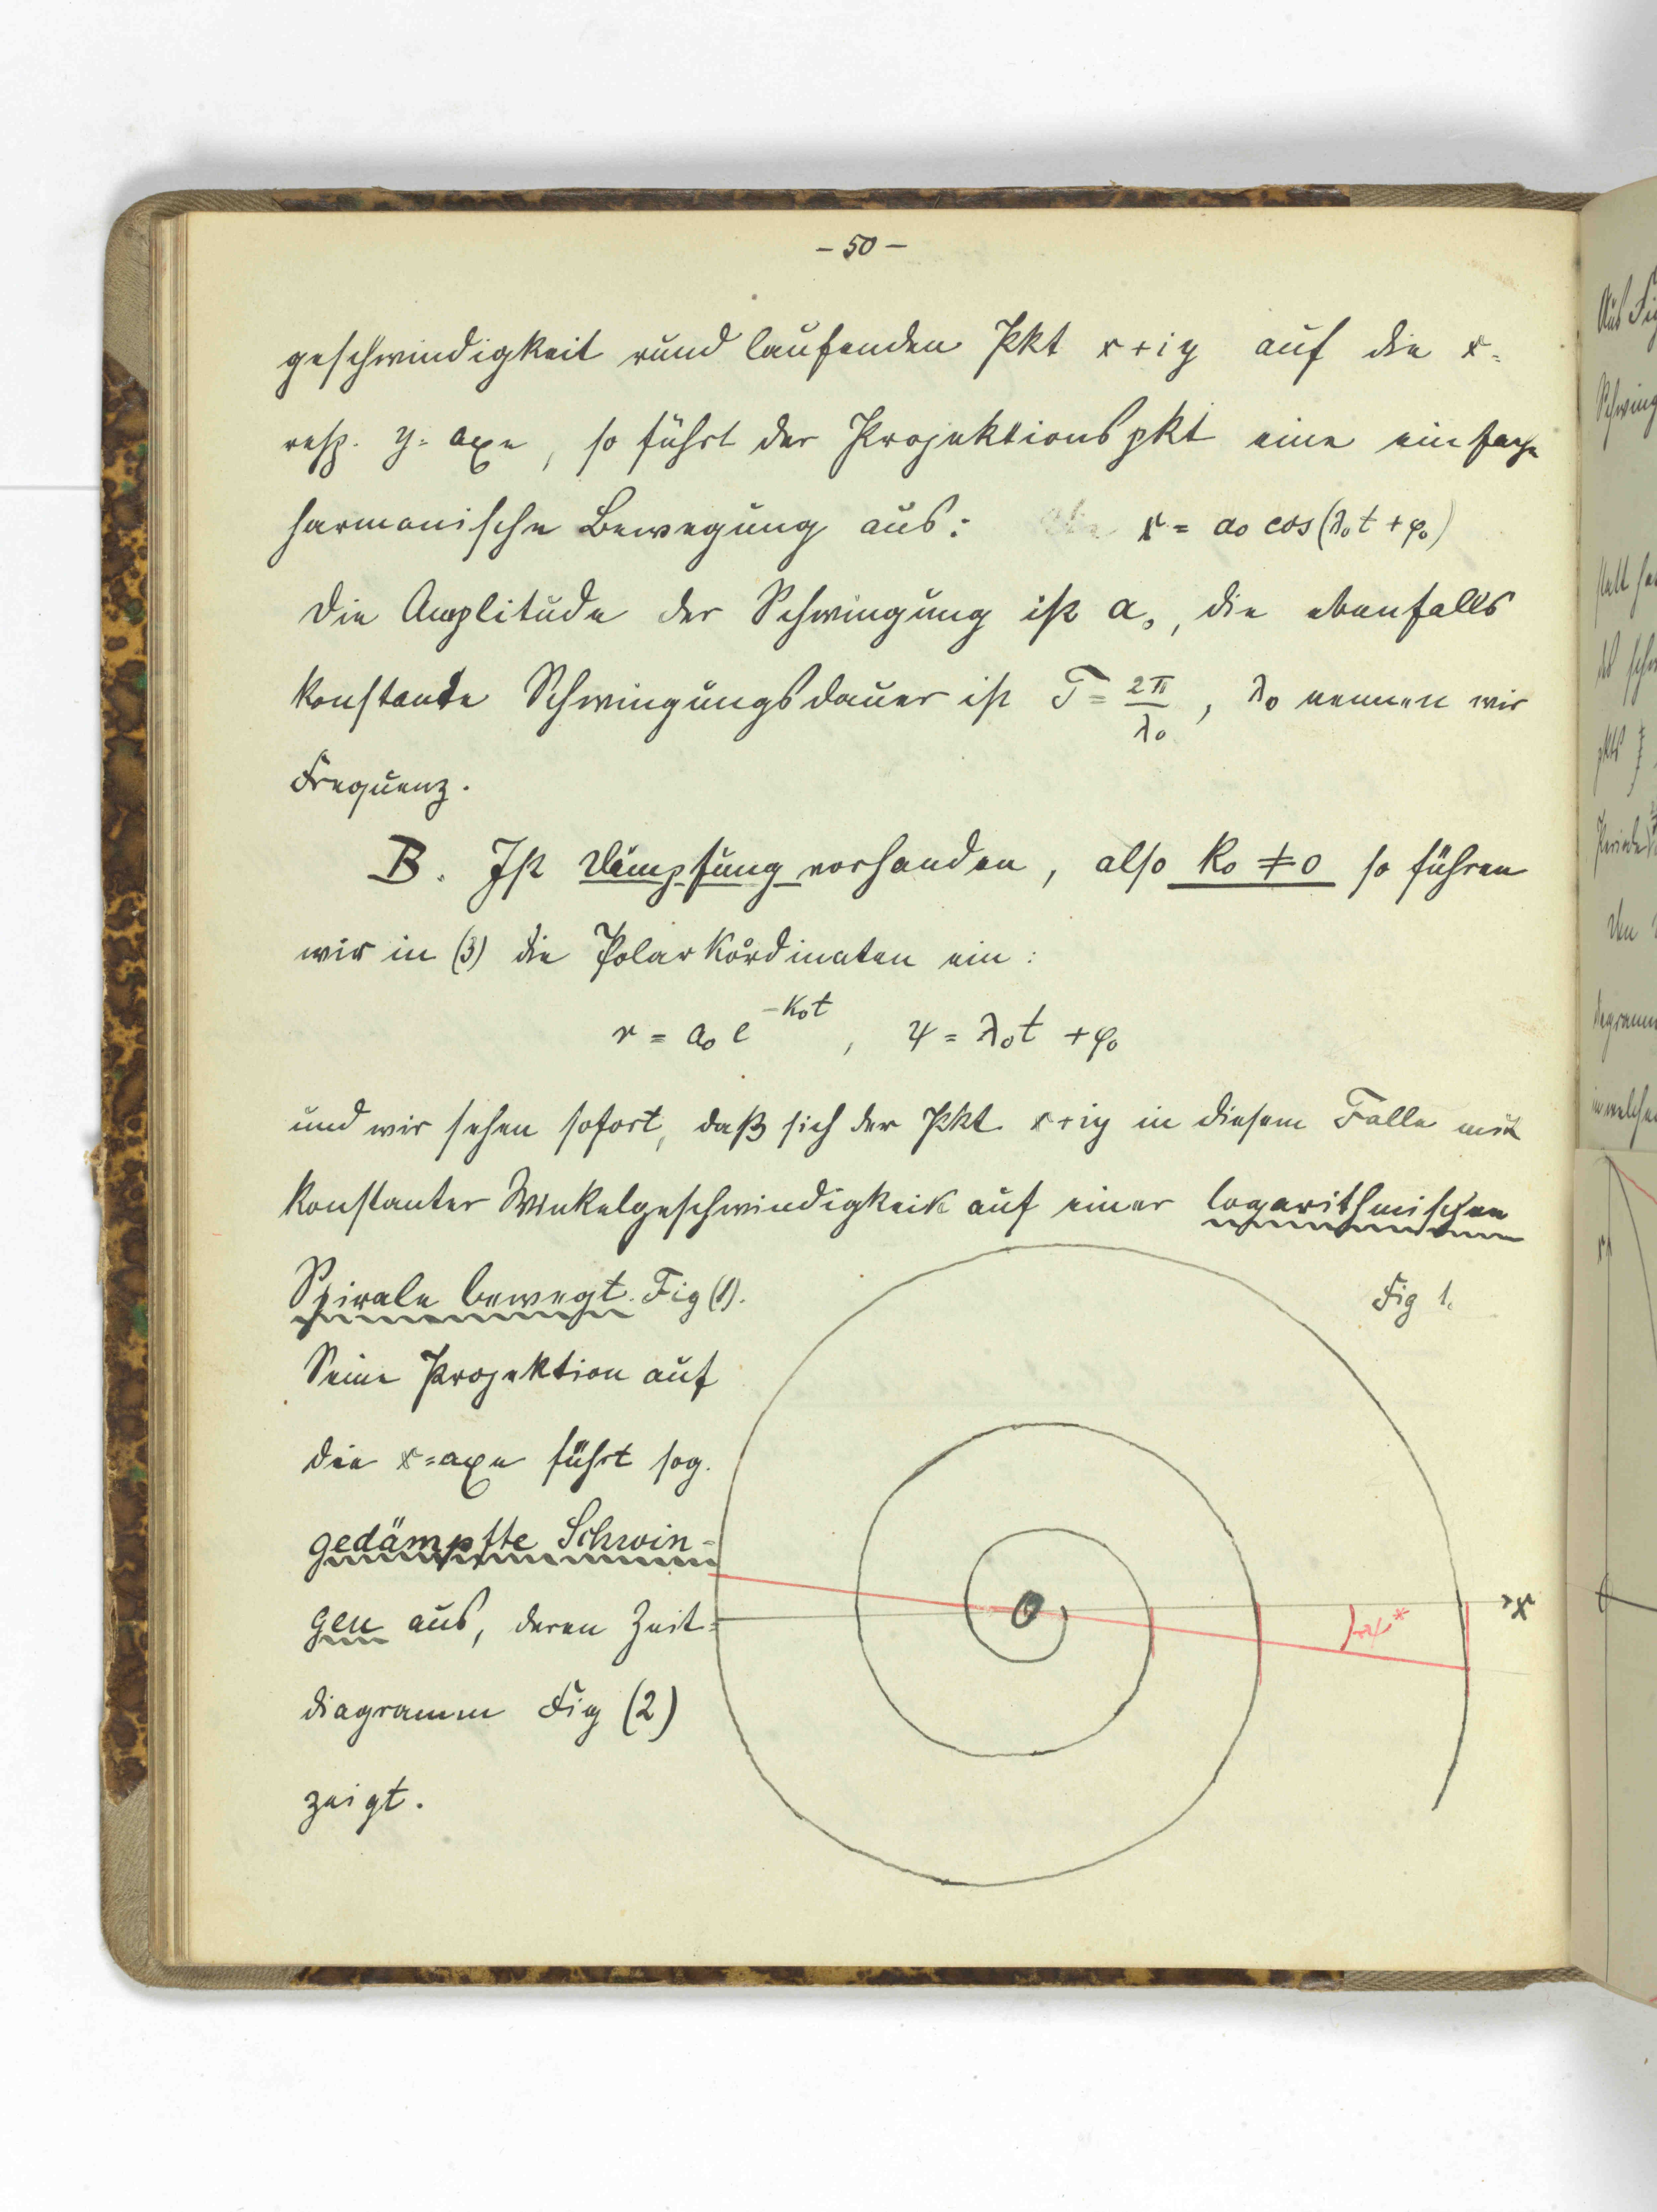 - 50 -
geschwindigkeit rund laufenden Pkt x+iy auf die x-
resp. y-axe, so führt der Projektionspkt eine einfache
harmonische Bewegung aus: x = a₀ cos(λ₀t + φ₀)
Die Amplitude der Schwingung ist a₀, die ebenfalls
konstante Schwingungsdauer ist T = 2π/λ₀, λ₀ nennen wir
Frequenz.
B. Ist Dämpfung vorhanden, also k₀ ≠ 0 so führen
wir in (3) die Polarkoordinaten ein:
r = a₀ e^{-k₀t}, ψ = λ₀t + φ₀
und wir sehen sofort, daß sich der Pkt x+iy in diesem Falle mit
konstanter Winkelgeschwindigkeit auf einer logarithmischen
Spirale bewegt. Fig (1).
Fig 1.
Seine Projektion auf
die x-axe führt sog.
gedämpfte Schwin-
gen aus, deren Zeit-
diagramm Fig (2)
zeigt.
x
ψ*
Aus Fig
Schwing
statt